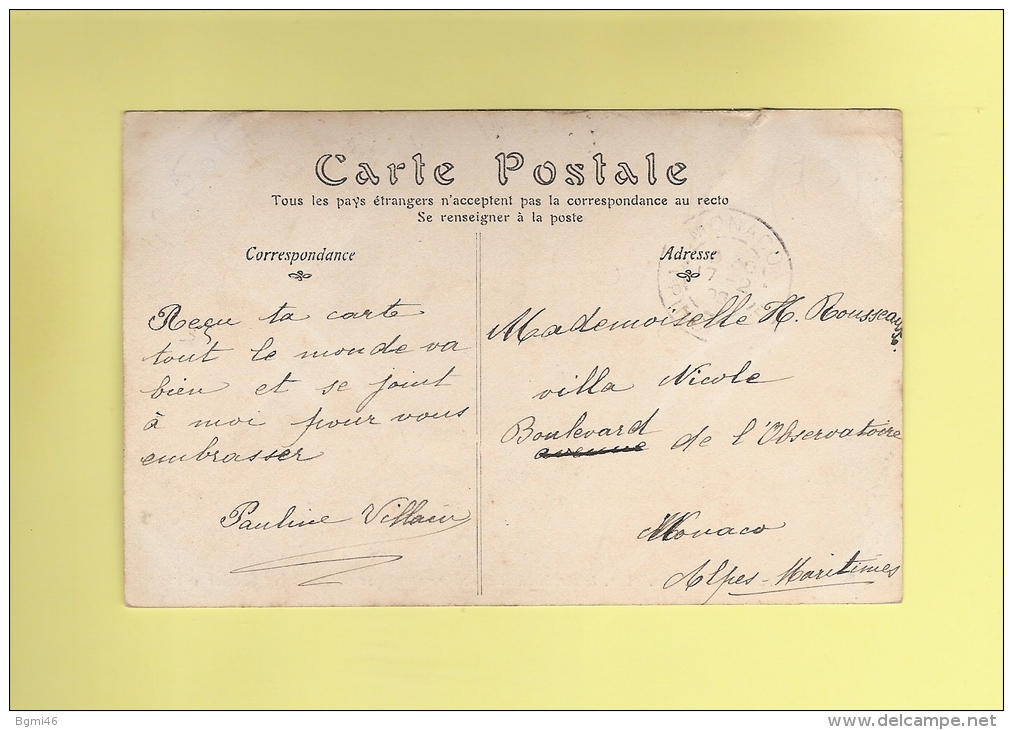 Carte Postale
Tous les pays étrangers n'acceptent pas la correspondance au recto
Se renseigner à la poste
Correspondance
Reçu ta carte
tout le monde va
bien et se joint
à moi pour vous
embrasser
Pauline Villain
Adresse
MONACO
17 2
Mademoiselle H. Rousseau
villa Nicole
Boulevard
avenue de l'Observatoire
Monaco
Alpes-Maritimes
Bgmi46
www.delcampe.net